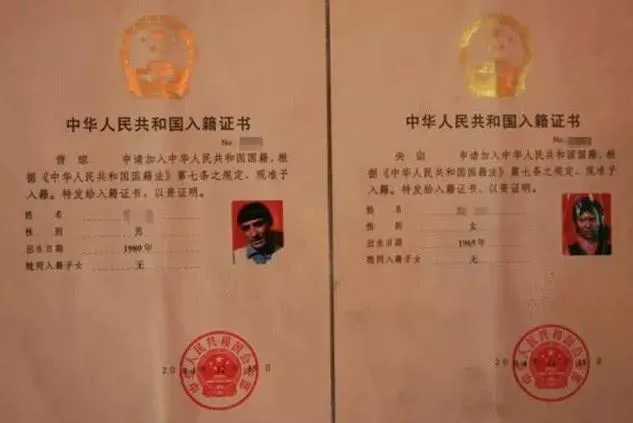 中华人民共和国入籍证书
No
申请加入中华人民共和国国籍，根
据《中华人民共和国国籍法》第七条之规定，现准予
入籍。特发给入籍证书，以资证明。
姓 名
性 别 男
出生日期 1980 年
随同入籍子女 无
中华人民共和国公安部
中华人民共和国入籍证书
No
申请加入中华人民共和国国籍，根
据《中华人民共和国国籍法》第七条之规定，现准予
入籍。特发给入籍证书，以资证明。
姓 名
性 别 女
出生日期 1965 年
随同入籍子女 无
中华人民共和国公安部